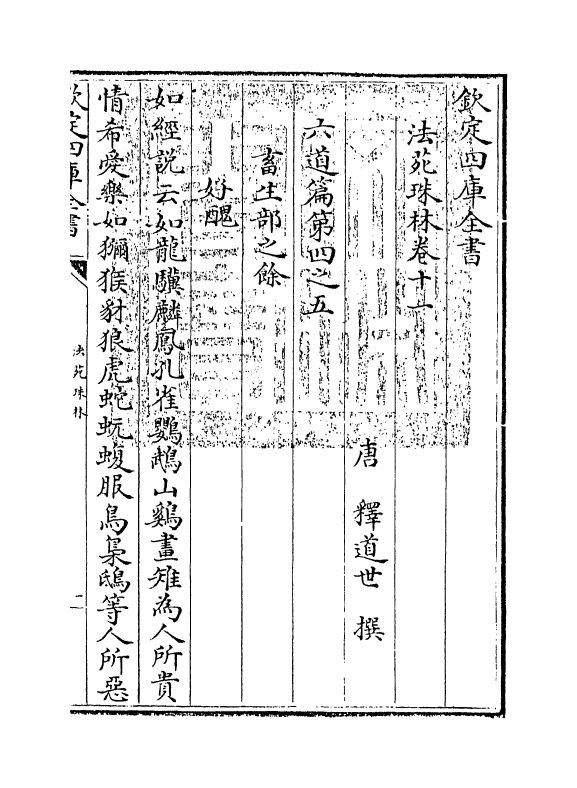 欽定四庫全書
法苑珠林卷十一
唐 釋道世 撰
六道篇第四之五
畜生部之餘
好醜
如經說云如龍驥麟鳳孔雀鸚鵡山鷄畫雉為人所貴
情希愛樂如獼猴豺狼虎蛇蚖蝮服鳥梟鴟等人所惡
欽定四庫全書
法苑珠林